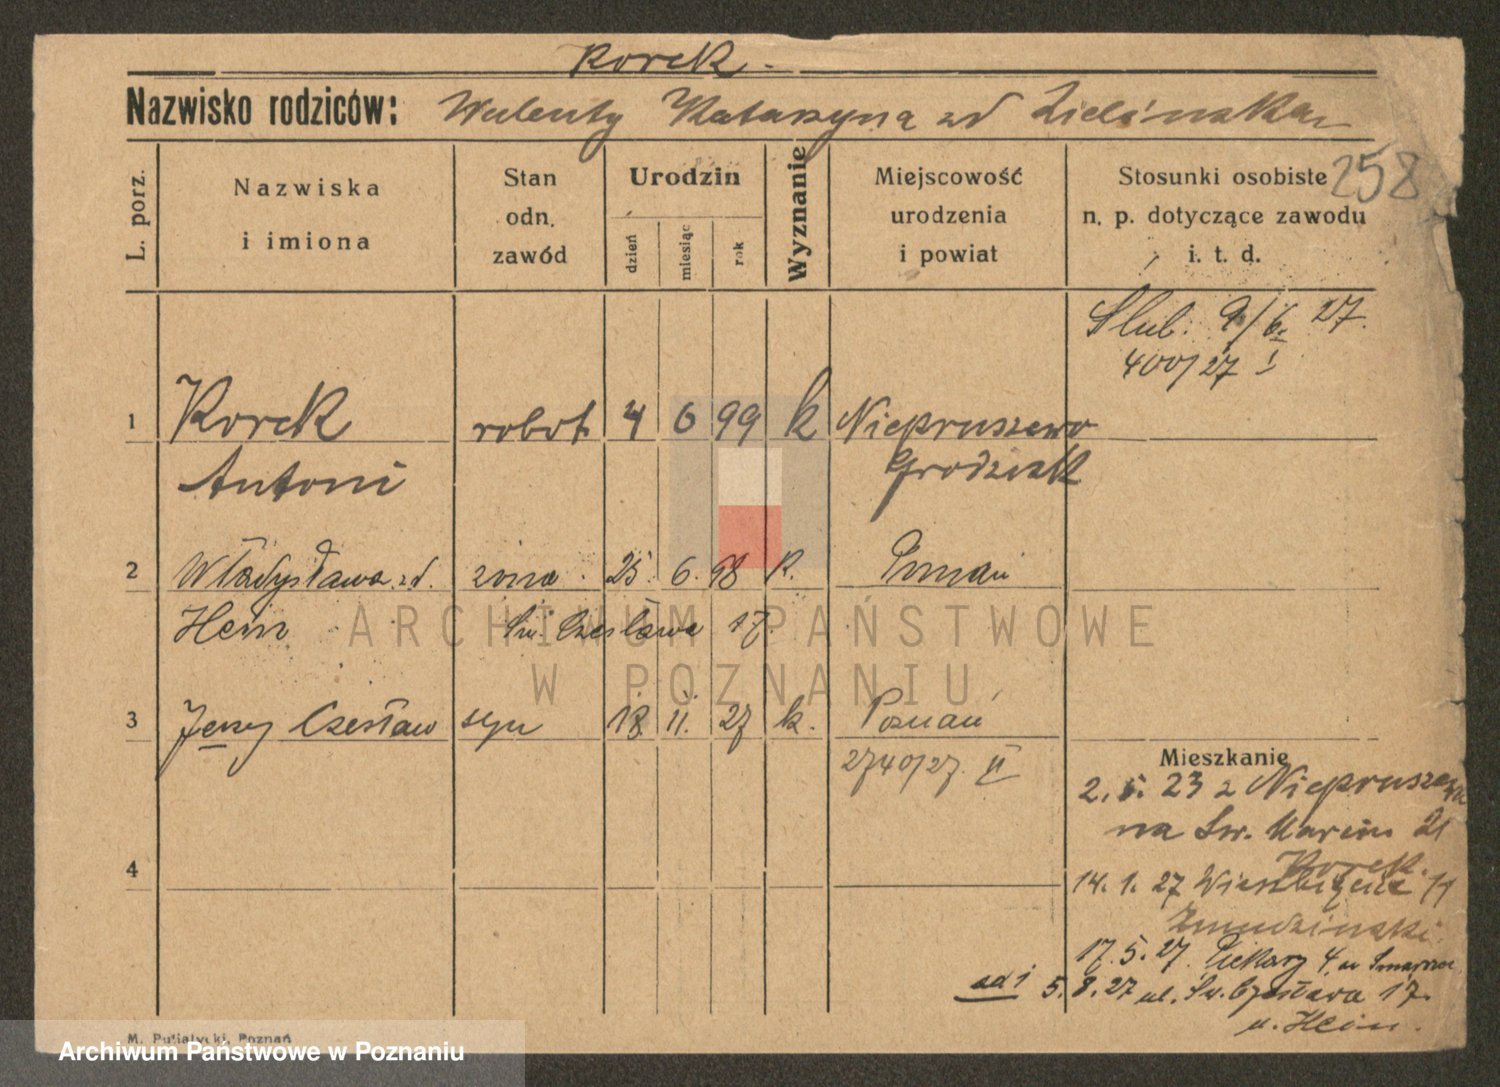 Korek.
Nazwisko rodziców: Walenty Katarzyna zd Zielińska
258
L. porz.
Nazwiska i imiona
Stan odn. zawód
Urodzin
dzień miesiąc rok
Wyznanie
Miejscowość urodzenia i powiat
Stosunki osobiste n. p. dotyczące zawodu i. t. d.
Slub. 9/6. 27.
400/27 I
1 Korek robot. 4 6 99 k Niepruszewo
Antoni Grodzisk
2 Władysława zd. żona. 25. 6. 98 k. Poznań
Hein Św. Czesława 17.
3 Jerzy Czesław syn 18. 11. 27 k. Poznań
2740/27. II
Mieszkanie
2. 5. 23 z Niepruszewa
na Św. Marcin 21
Korek.
4
14. 1. 27 Wierzbięcice 11
Zmudzinski.
17. 5. 27. Piekary 4
ad 1 5. 8. 27 ul. Św. Czesława 17.
u. Hein.
M. Putiatycki, Poznań
ARCHIWUM PAŃSTWOWE
W POZNANIU
Archiwum Państwowe w Poznaniu